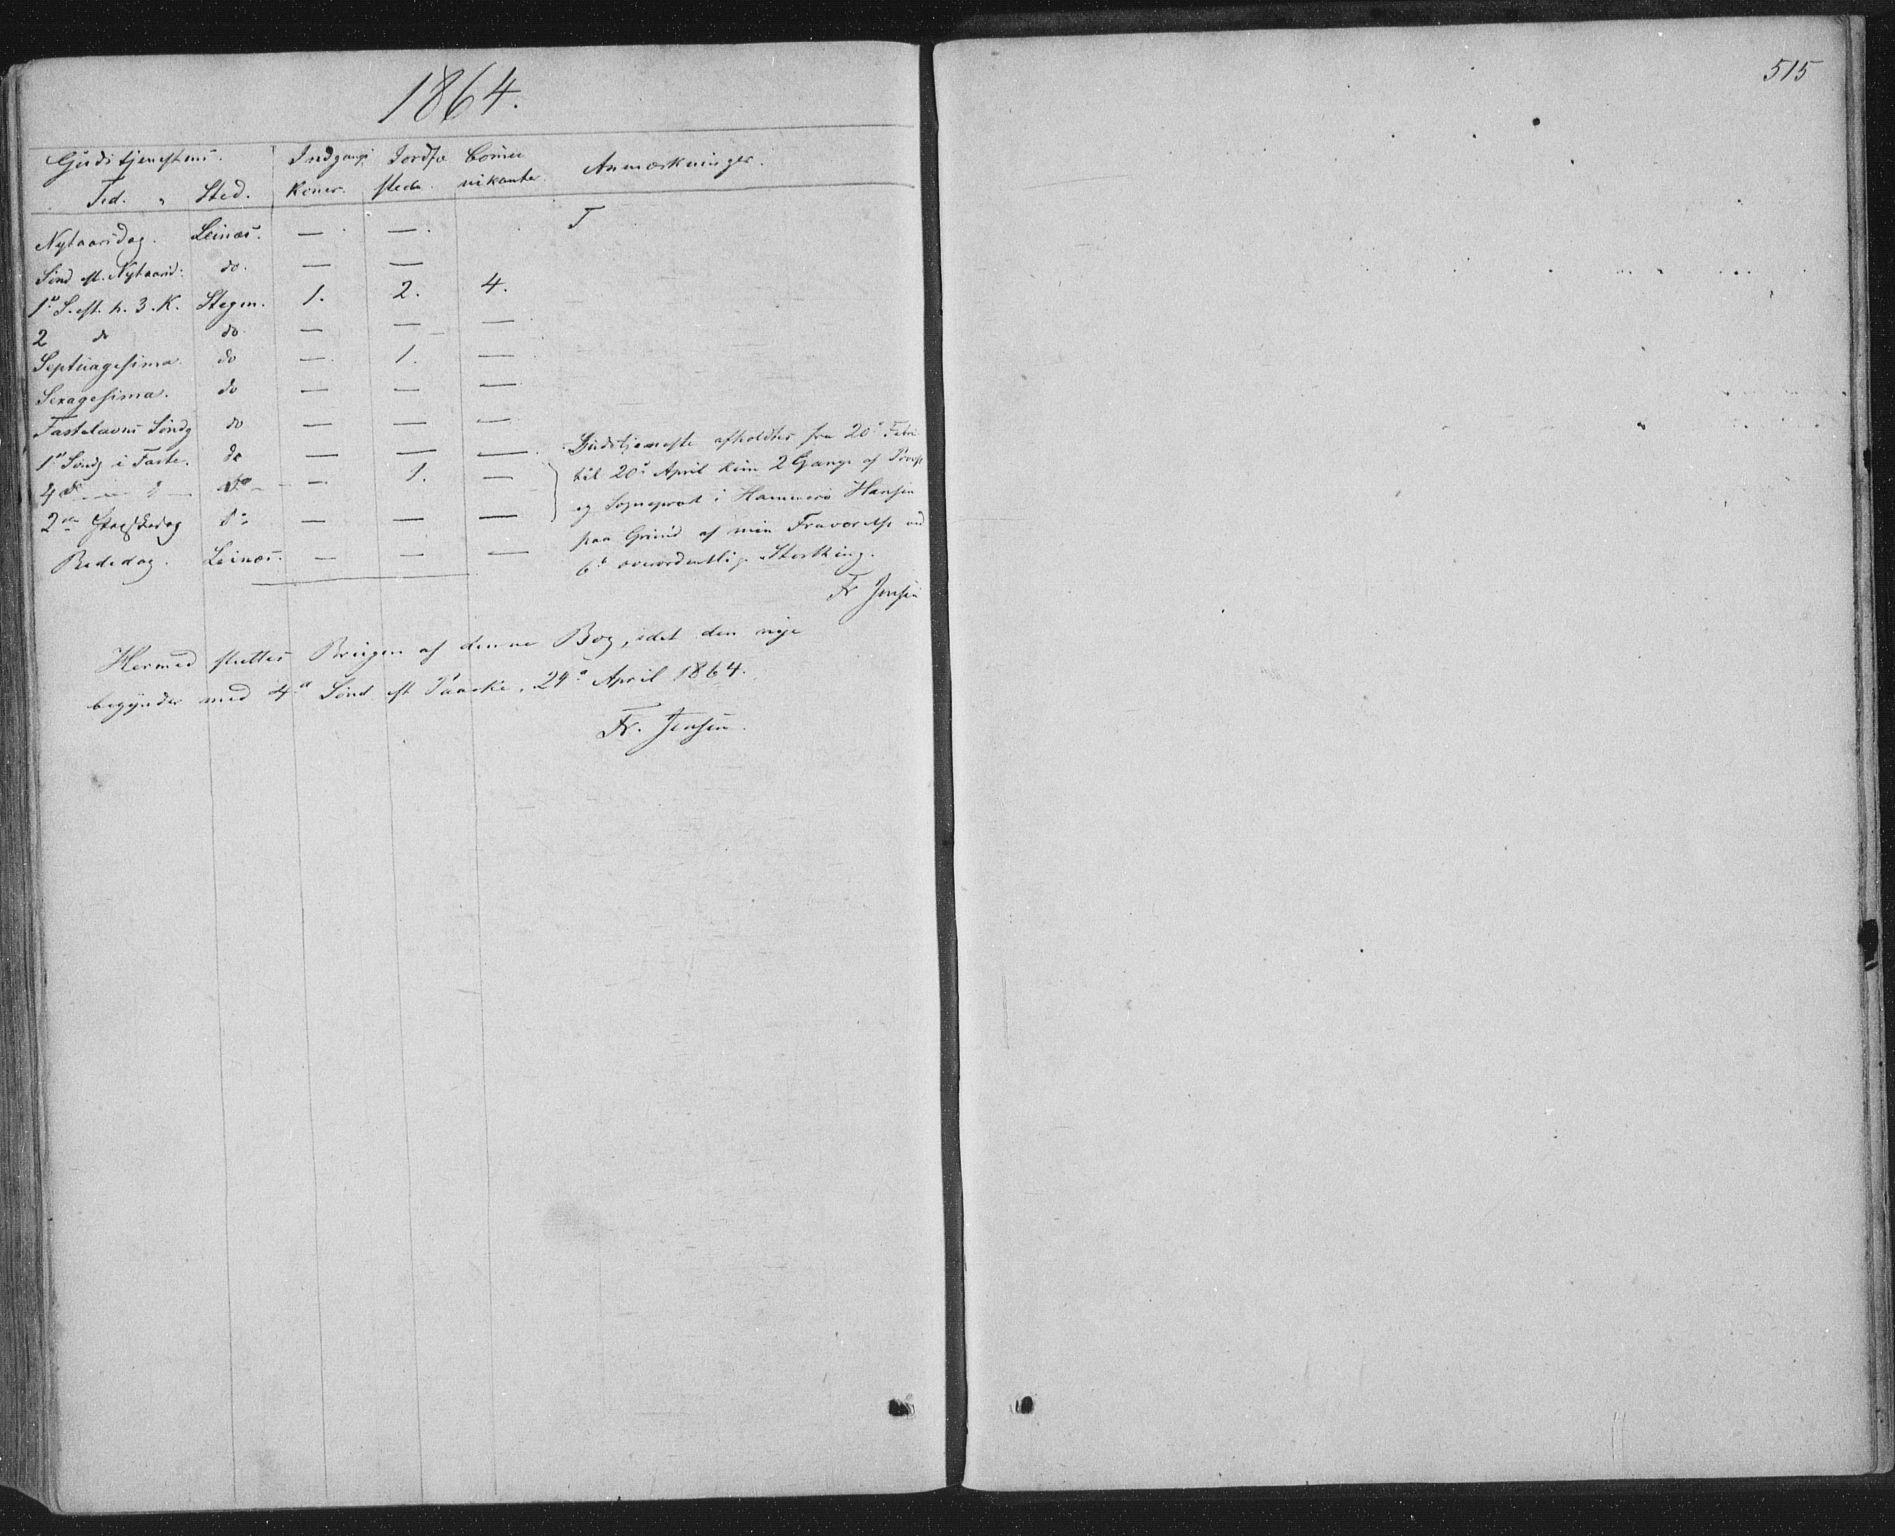 1864.
515
Gudstjenestens. Indgangs Jordfæ Commu Anmærkninger.
Tid. Sted. Koner. stede. nikanter.
Nytaarsdag. Leinæs. — — T
Sönd eft. Nytaard: do. — —
1ste S. eft. h. 3. K. Stegen. 1. 2. 4.
2 do do — — —
Septuagesima do — 1. —
Sexagesima. do — — —
Fastelavns Söndg do — — —
1ste Söndg i Faste. do — — — Gudstjeneste afholdtes fra 20de Febr
4de — do — 1. — til 20de April kun 2 Gange af Provst
2den Paaskedag do — — — og Sogneprest i Hammerö Hansen
paa Grund af min Fraværelse ved
Bededag. Leinæs. — — — 6te overordentlige Storthing.
Fr Jensen
Hermed sluttes Brugen af denne Bog, idet den nye
begynder med 4de Sönd eft Paaske, 24de April 1864.
Fr. Jensen.